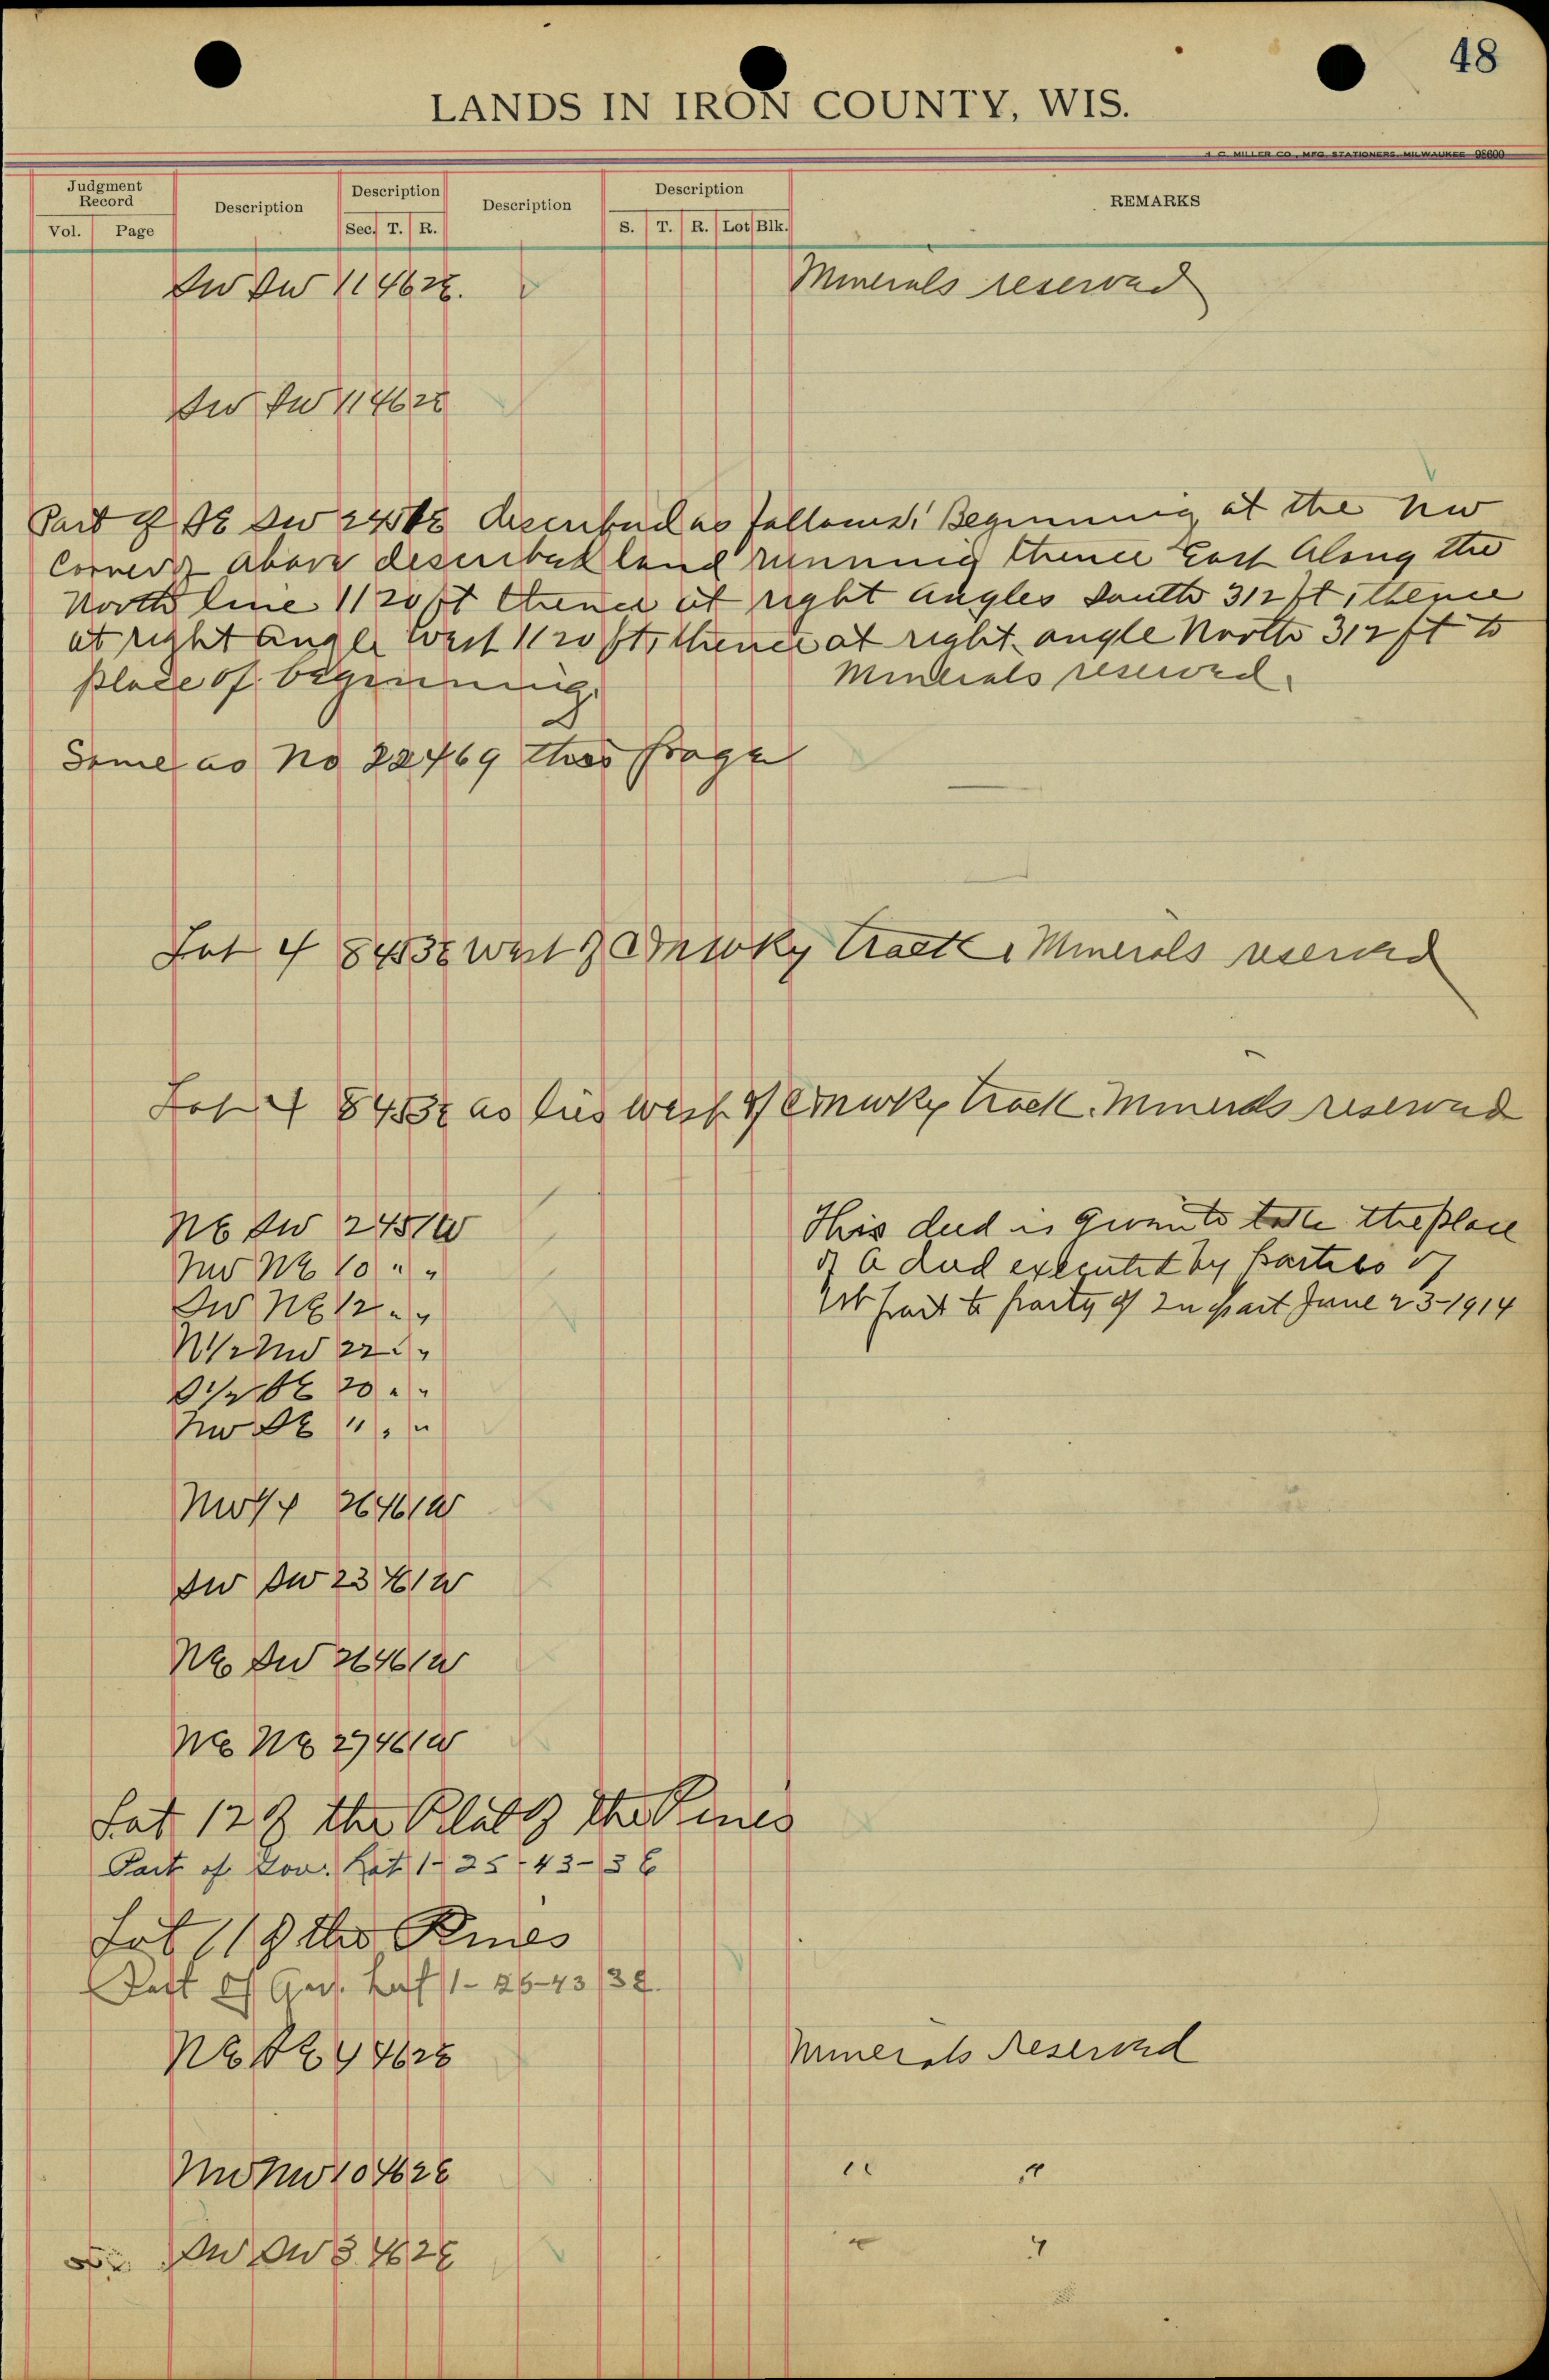 48
LANDS IN IRON COUNTY, WIS.
H. C. MILLER CO., MFG. STATIONERS, MILWAUKEE 98600
Judgment Record Description Description Description Description REMARKS
Vol. Page Sec. T. R. S. T. R. Lot Blk.
SW SW 11 46 2E. Minerals reserved
SW SW 11 46 2E
Part of SE SW 24 51 E described as follows: Beginning at the NW
Corner of above described land running thence East Along the
North line 1120 ft thence at right angles South 312 ft, thence
at right angle West 1120 ft, thence at right angle North 312 ft to
place of beginning. Minerals reserved.
Same as No 22469 this page
Lot 4 8 45 3E West of CMWRy track. Minerals reserved
Lot 4 8 45 3E as lies West of CMWRy track. Minerals reserved
NE SW 24 51 W This deed is given to take the place
NW NE 10 " " of a deed executed by parties of
SW NE 12 " " 1st part to party of 2n part June 23-1914
N1/2 NW 22 " "
S1/2 SE 20 " "
NW SE " " "
NW1/4 26 46 1W
SW SW 23 46 1W
NE SW 26 46 1W
NE NE 27 46 1W
Lot 12 of the Plat of The Pines
Part of Gov. Lot 1-25-43-3E
Lot 11 of the Pines
Part of Gov. Lot 1-25-43-3E.
NE SE 4 46 2E Minerals Reserved
NW NW 10 46 2E " "
SW SW 3 46 2E " "